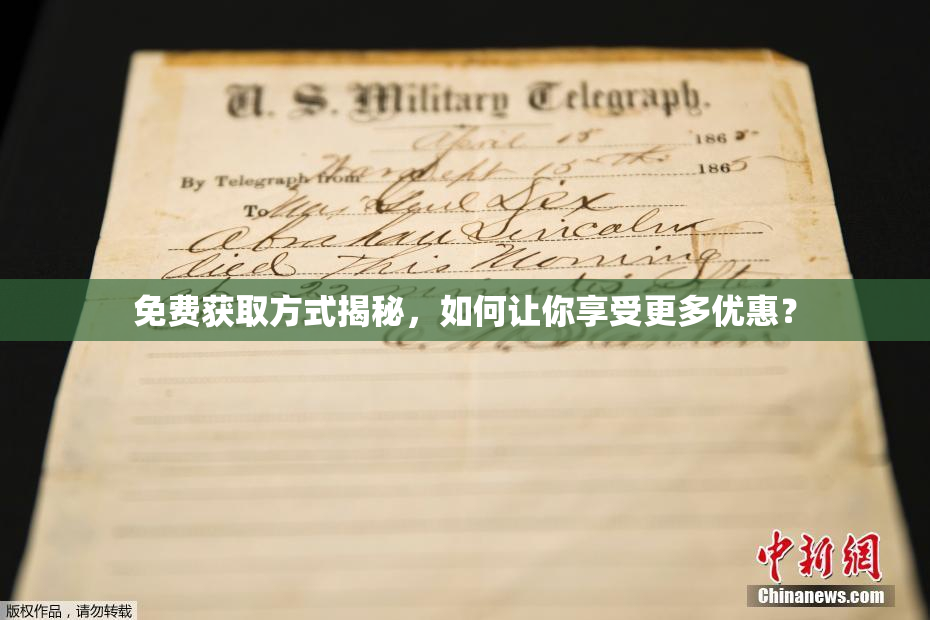 U. S. Military Telegraph.
April 15 1865
By Telegraph from War Dept 15th 1865
To Maj Genl Dix
Abraham Lincoln
died This Morning
at 22 minutes after
免费获取方式揭秘，如何让你享受更多优惠？
E. M. Stanton
中新网
Chinanews.com
版权作品，请勿转载